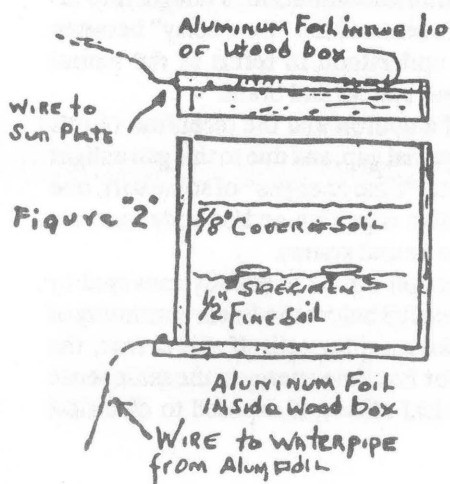 ALUMINUM FOIL IN WOOD LID
OF WOOD BOX
WIRE TO
SUN PLATE
Figure "2"
5/8" COVER of SOIL
SPECIMENS
1/2" FINE SOIL
ALUMINUM FOIL
INSIDE WOOD BOX
WIRE TO WATERPIPE
from ALUM FOIL